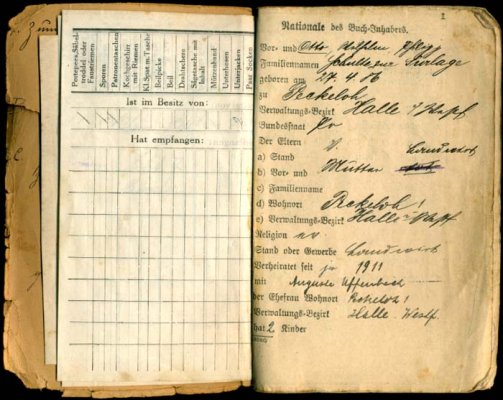 Postepers. Säbel-
troddel oder
Faustriemen
Sporen
Patronentaschen
Kochgeschirr
mit Riemen
Kl. Spat. m. Tasche
Beilpicke
Beil
Drahtschere
Sägetasche mit
Inhalt
Mützenband
Unterhosen
Unterjacken
Paar Socken
Ist im Besitz von:
Hat empfangen:
1
Nationale des Buch-Inhabers.
Vor- und Otto
Familiennamen Schulte zur Surlage
geboren am 27.4.86
zu Rakeloh
Verwaltungs-Bezirk Halle i/Westf
Bundesstaat Pr
Der Eltern
a) Stand Landwirt
b) Vor- und Mutter
c) Familienname
d) Wohnort Rokeloh!
e) Verwaltungs-Bezirk Halle i/Westf
Religion ev.
Stand oder Gewerbe Landwirt
Verheiratet seit ja 1911
mit Auguste Uffenbach
der Ehefrau Wohnort Rokeloh!
Verwaltungs-Bezirk Halle. Westf.
hat 2 Kinder